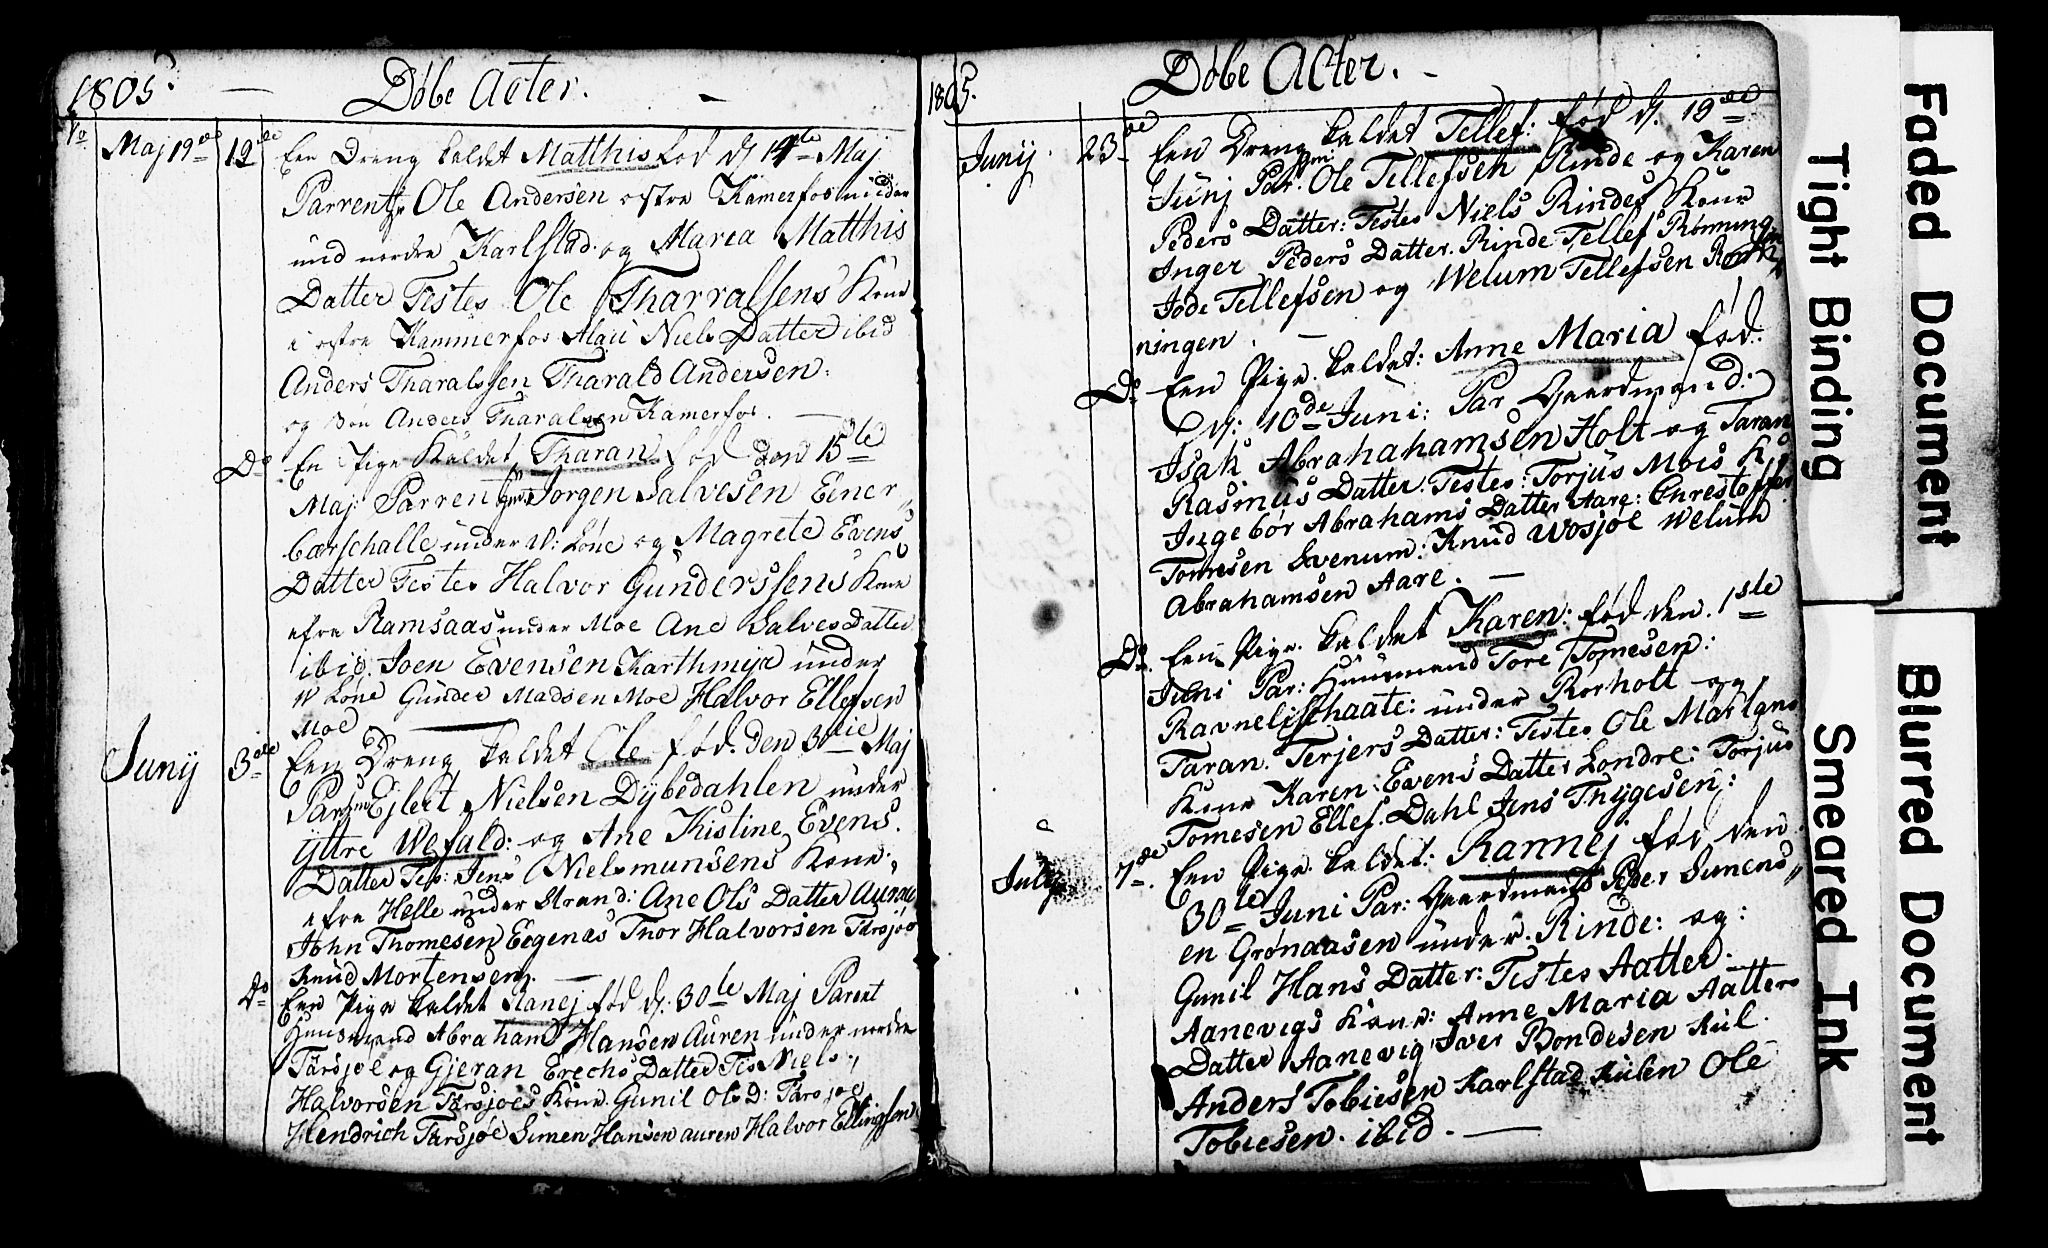 1805.
Døbe Acter.
No
Maj 19de 19de Een Dreng kaldet Matthis fød d/ 14te Maj
Parrentr Ole Andersen østre Kamerfos
und nordre Karlstad og Marea Matthis
Datter Testes Ole Tharralsens Kone
i østre Kammerfos Niels Datter ibid
Anders Tharalssen Tharald Andersen:
og Anders Tharalsen Kamerfos. —
Do En Pige Kaldet Tharan fød den 15de
Maj Parrent Jorgen Salvesen Einer„
bærschalle under W: Løne og Magrete Evens
Datter Testes Halvor Gunderssens Kone
Ramsaas under Moe Ane Salves Datter
ibid. Joen Evensen Karthmyr under
W Løne Gunder Madsen Moe Halvor Ellefsen
Moe —
Junij 3die Een Dreng kaldet Ole fød. den 30tie Maj
Par Ejlert Nielsen Dybedahlen under
Yttre Wefald: og Ane Kistine Evens.
Datter Tes: Jens Nielsmunsens Kone.
Helle under Strand: Ane Ols Datter
John Thomesen Eegenæs Tnor Halvorsen Tårsjøe
Knud Mortensen. —
Do Een Pige kaldet Ranej fød d/: 30te Maj Parent
Huusmand Abraham Hansen Auren under nordre
Tårsjøe og Gjeran Erechs Datter Tes Niels„
Halvorsen Tårsjoes Kone Gunil Ols D: Tårsjoe
Hendrich Tårsjøe Simen Hansen auren Halvor Ellingsen
1805.
Døbe Acter. -
Junij 23de Een Dreng kaldet Tellef: fød d/. 19de
Junj Par. Ole Tellefsen Rinde og Karen
Peders Datter: Testes Niels Rindes Kone
Inger Peders Datter. Rinde Tellef Rønning
Jode Tellefsen og Welum Tellefsen
ningen. —
Do Een Pige. kaldet: Anne Maria fød:
d/: 10de Juni: Par Gaardmand:
Isak Abrahahamsen Holt og Taran
Rasmus Datter. Testes: Torjus Moes K:
Ingebor Abrahams Datter Aare: Chrestoffer
Tomesen Svenum: Knud Wosjoe Welum
Abrahamsen Aare. —
Do. Een Pige. kaldet Karen: fød den. 1ste
Juni Par: Huusmand Tore Tomesen:
Ravneliſchaate: under Rørholt og
Taran. Terjers Datter: Testes Ole Mårtans
Kone Karen: Evens Datter Londre: Torjus
Tomesen Ellef. Dahl Jens Thygesen:
July 7de. Een Pige. kaldet: Rannej fød den
30te Juni Par: Gaardmand Peder Simens„
en Grønaasen under. Rinde: og:
Gunil Hans Datter: Testes Aatter.
Aanevigs Kone: Anne Maria Aatters
Datter Aanevig Iver Bondesen Kiil.
Anders Tobiesen Karlstad Kiilen Ole
Tobiesen. ibid. —
Faded Document
Tight Binding
Blurred Document
Smeared Ink